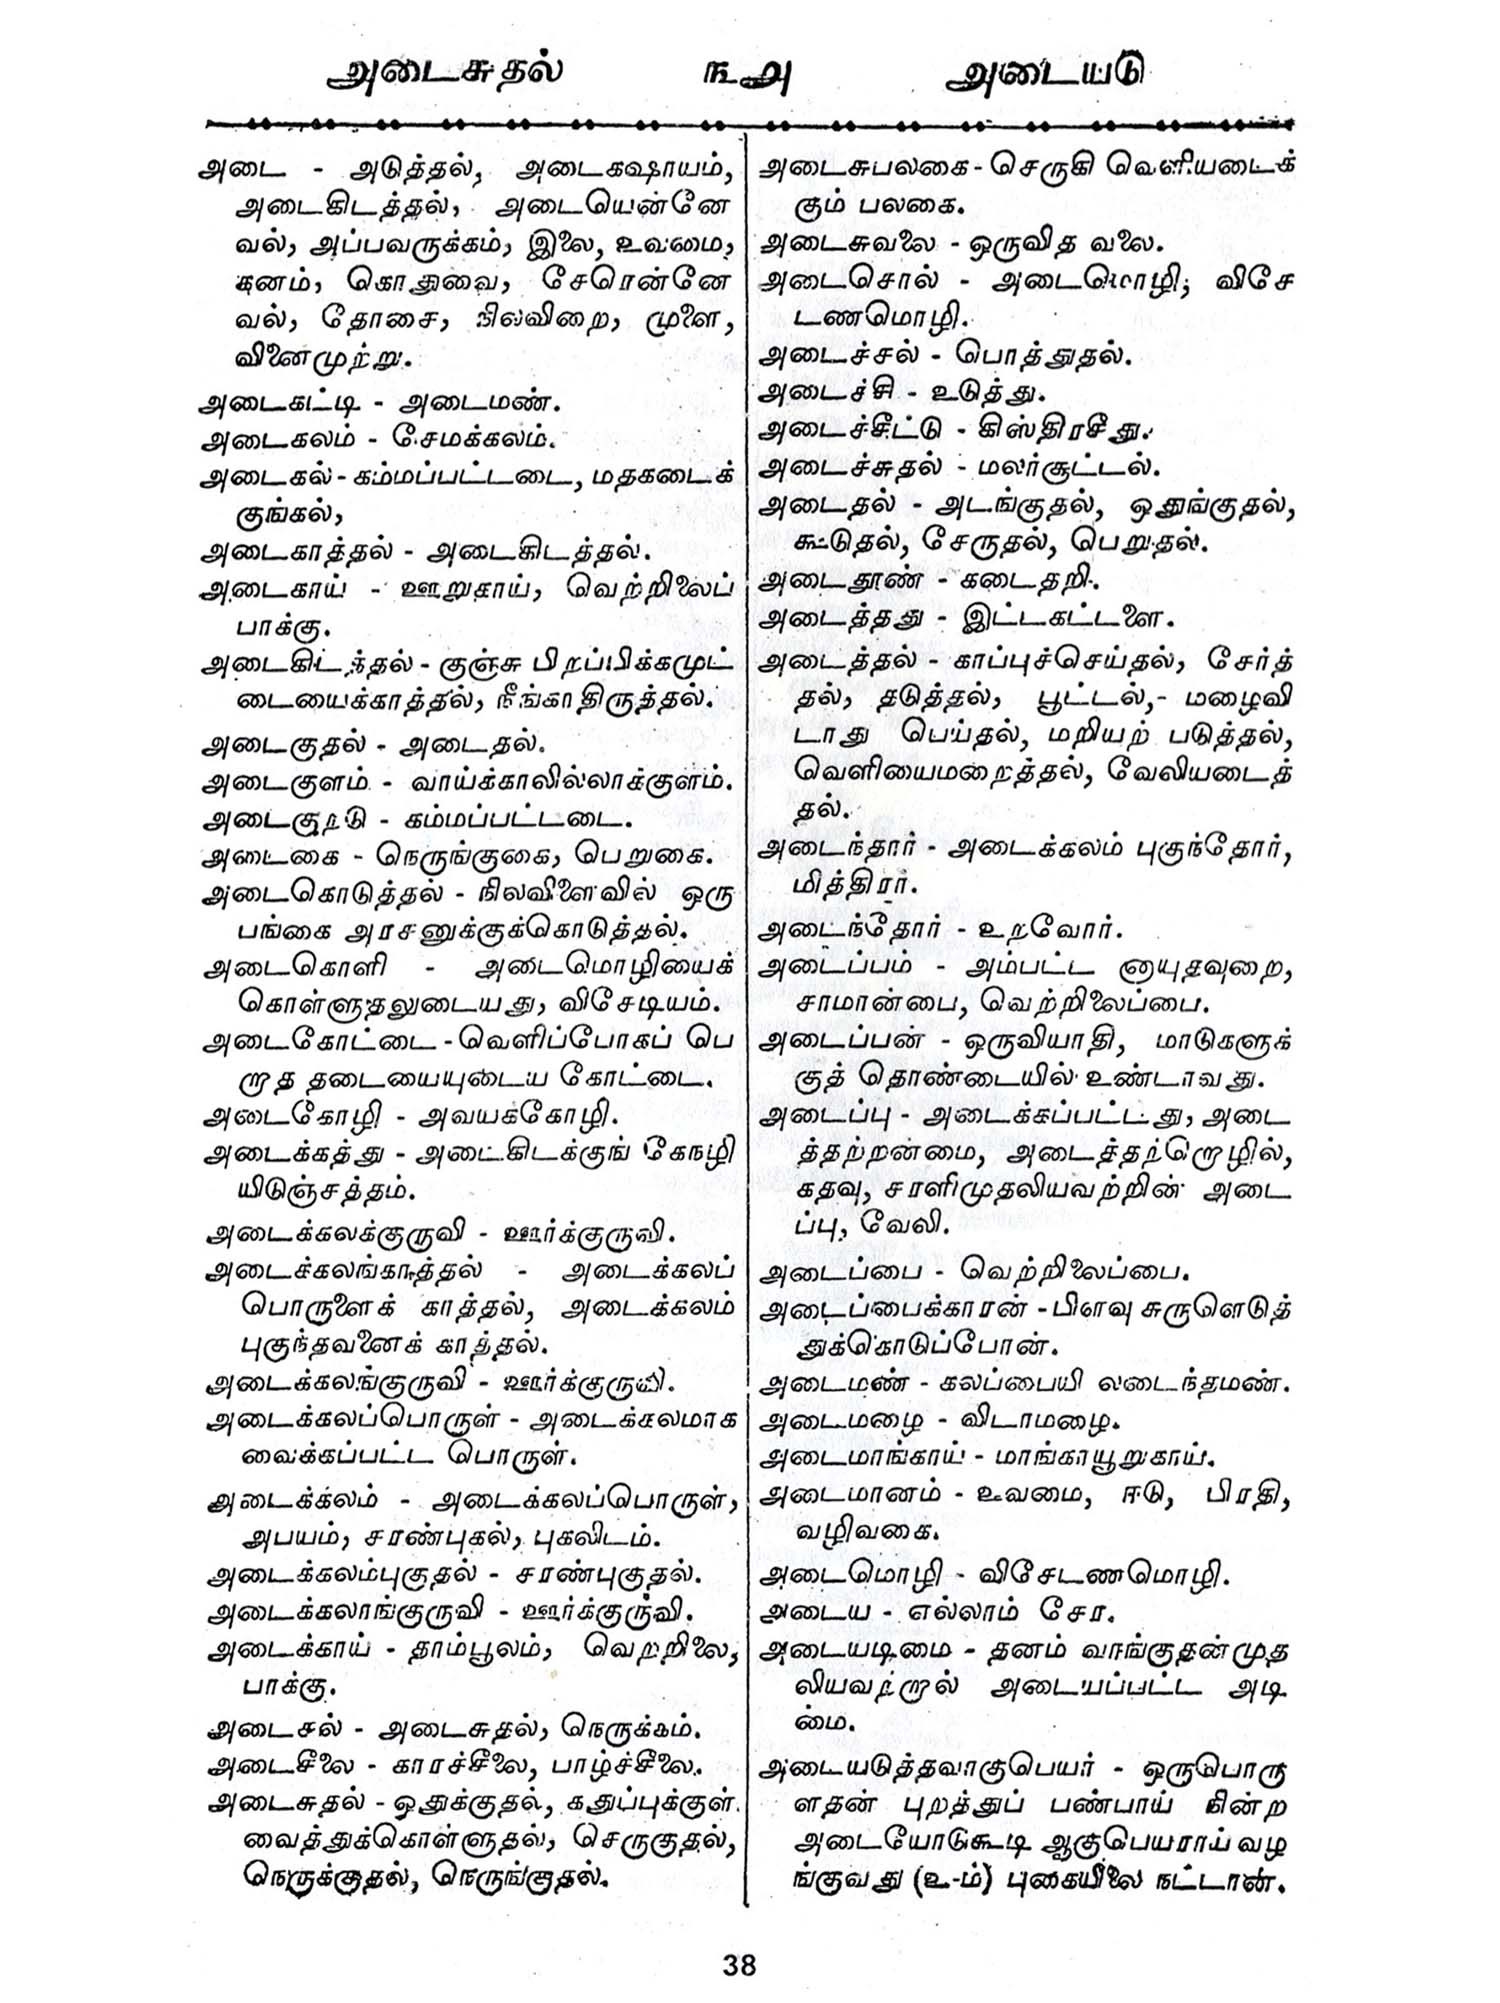 அடைசுதல் ௩௮ அடையடு
அடை - அடுத்தல், அடைகஷாயம்,
அடைகிடத்தல், அடையென்னே
வல், அப்பவருக்கம், இலை, உவமை,
கனம், கொதுவை, சேரென்னே
வல், தோசை, நிலவிறை, முளை,
வினைமுற்று.
அடைகட்டி - அடைமண்.
அடைகலம் - சேமக்கலம்.
அடைகல் - கம்மப்பட்டடை, மதகடைக்
குங்கல்,
அடைகாத்தல் - அடைகிடத்தல்.
அடைகாய் - ஊறுகாய், வெற்றிலைப்
பாக்கு.
அடைகிடத்தல் - குஞ்சு பிறப்பிக்கமுட்
டையைக்காத்தல், நீங்காதிருத்தல்.
அடைகுதல் - அடைதல்.
அடைகுளம் - வாய்க்காலில்லாக்குளம்.
அடைகுறடு - கம்மப்பட்டடை.
அடைகை - நெருங்குகை, பெறுகை.
அடைகொடுத்தல் - நிலவிளைவில் ஒரு
பங்கை அரசனுக்குக்கொடுத்தல்.
அடைகொளி - அடைமொழியைக்
கொள்ளுதலுடையது, விசேடியம்.
அடைகோட்டை - வெளிப்போகப் பெ
றாத தடையையுடைய கோட்டை.
அடைகோழி - அவயக்கோழி.
அடைக்கத்து - அடைகிடக்குங் கோழி
யிடுஞ்சத்தம்.
அடைக்கலக்குருவி - ஊர்க்குருவி.
அடைக்கலங்காத்தல் - அடைக்கலப்
பொருளைக் காத்தல், அடைக்கலம்
புகுந்தவனைக் காத்தல்.
அடைக்கலங்குருவி - ஊர்க்குருவி.
அடைக்கலப்பொருள் - அடைக்கலமாக
வைக்கப்பட்ட பொருள்.
அடைக்கலம் - அடைக்கலப்பொருள்,
அபயம், சரண்புகல், புகலிடம்.
அடைக்கலம்புகுதல் - சரண்புகுதல்.
அடைக்கலாங்குருவி - ஊர்க்குருவி.
அடைக்காய் - தாம்பூலம், வெற்றிலை,
பாக்கு.
அடைசல் - அடைசுதல், நெருக்கம்.
அடைசீலை - காரச்சீலை, பாழ்ச்சீலை.
அடைசுதல் - ஒதுக்குதல், கதுப்புக்குள்
வைத்துக்கொள்ளுதல், செருகுதல்,
நெருக்குதல், நெருங்குதல்.
அடைசுபலகை - செருகி வெளியடைக்
கும் பலகை.
அடைசுவலை - ஒருவித வலை.
அடைசொல் - அடைமொழி, விசே
டணமொழி.
அடைச்சல் - பொத்துதல்.
அடைச்சி - உடுத்து.
அடைச்சீட்டு - கிஸ்திரசீது.
அடைச்சுதல் - மலர்சூட்டல்.
அடைதல் - அடங்குதல், ஒதுங்குதல்,
கூட்டுதல், சேருதல், பெறுதல்.
அடைதூண் - கடைதறி.
அடைத்தது - இட்டகட்டளை.
அடைத்தல் - காப்புச்செய்தல், சேர்த்
தல், தடுத்தல், பூட்டல், - மழைவி
டாது பெய்தல், மறியற் படுத்தல்,
வெளியைமறைத்தல், வேலியடைத்
தல்.
அடைந்தார் - அடைக்கலம் புகுந்தோர்,
மித்திரர்.
அடைந்தோர் - உறவோர்.
அடைப்பம் - அம்பட்ட னாயுதவுறை,
சாமான்பை, வெற்றிலைப்பை.
அடைப்பன் - ஒருவியாதி, மாடுகளுக்
குத் தொண்டையில் உண்டாவது.
அடைப்பு - அடைக்கப்பட்டது, அடை
த்தற்றன்மை, அடைத்தற்றொழில்,
கதவு, சரளிமுதலியவற்றின் அடை
ப்பு, வேலி.
அடைப்பை - வெற்றிலைப்பை.
அடைப்பைக்காரன் - பிளவு சுருளெடுத்
துக்கொடுப்போன்.
அடைமண் - கலப்பையி லடைந்தமண்.
அடைமழை - விடாமழை.
அடைமாங்காய் - மாங்காயூறுகாய்.
அடைமானம் - உவமை, ஈடு, பிரதி,
வழிவகை.
அடைமொழி - விசேடணமொழி.
அடைய - எல்லாம் சேர.
அடையடிமை - தனம் வாங்குதன்முத
லியவற்றால் அடையப்பட்ட அடி
மை.
அடையடுத்தவாகுபெயர் - ஒருபொரு
ளதன் புறத்துப் பண்பாய் நின்ற
அடையோடுகூடி ஆகுபெயராய் வழ
ங்குவது (உ-ம்) புகையிலை நட்டான்.
38